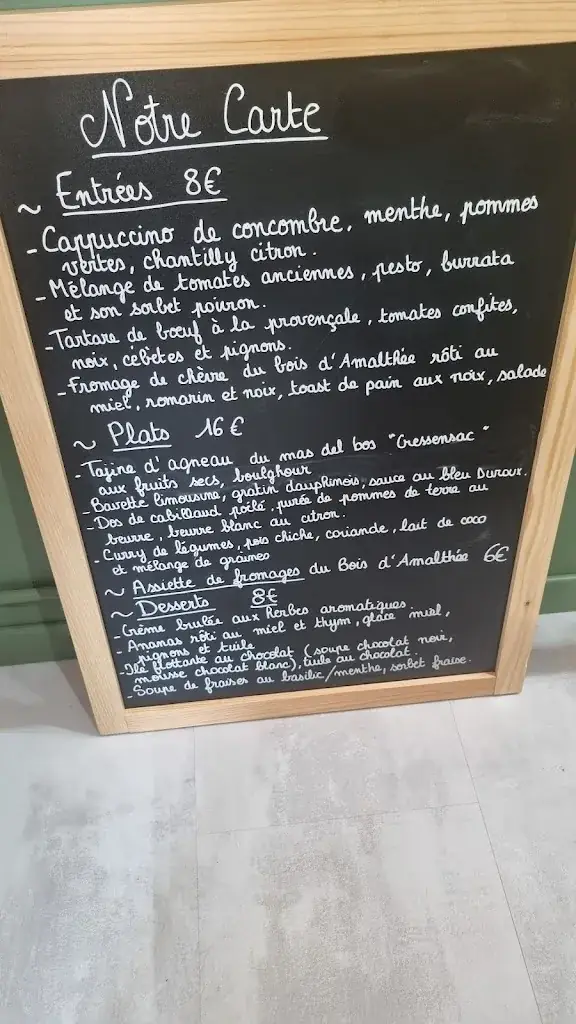 Notre Carte
~ Entrées 8€
- Cappuccino de concombre, menthe, pommes
vertes, chantilly citron.
- Mélange de tomates anciennes, pesto, burrata
et son sorbet poivron.
- Tartare de bœuf à la provençale, tomates confites,
noix, cébètes et pignons.
- Fromage de chèvre du bois d'Amalthée rôti au
miel, romarin et noix, toast de pain aux noix, salade
~ Plats 16€
- Tajine d'agneau du mas del bos "Cressensac"
aux fruits secs, boulghour
- Bavette limousine, gratin dauphinois, sauce au bleu Duroux.
- Dos de cabillaud poêlé, purée de pommes de terre au
beurre, beurre blanc au citron.
- Curry de légumes, pois chiche, coriande, lait de coco
et mélange de graines
~ Assiette de fromages du Bois d'Amalthée 6€
~ Desserts 8€
- Crème brulée aux herbes aromatiques
- Ananas rôti au miel et thym, glace miel,
pignons et tuile
- Ile flottante au chocolat (soupe chocolat noir,
mousse chocolat blanc), tuile au chocolat.
- Soupe de fraises au basilic/menthe, sorbet fraise.